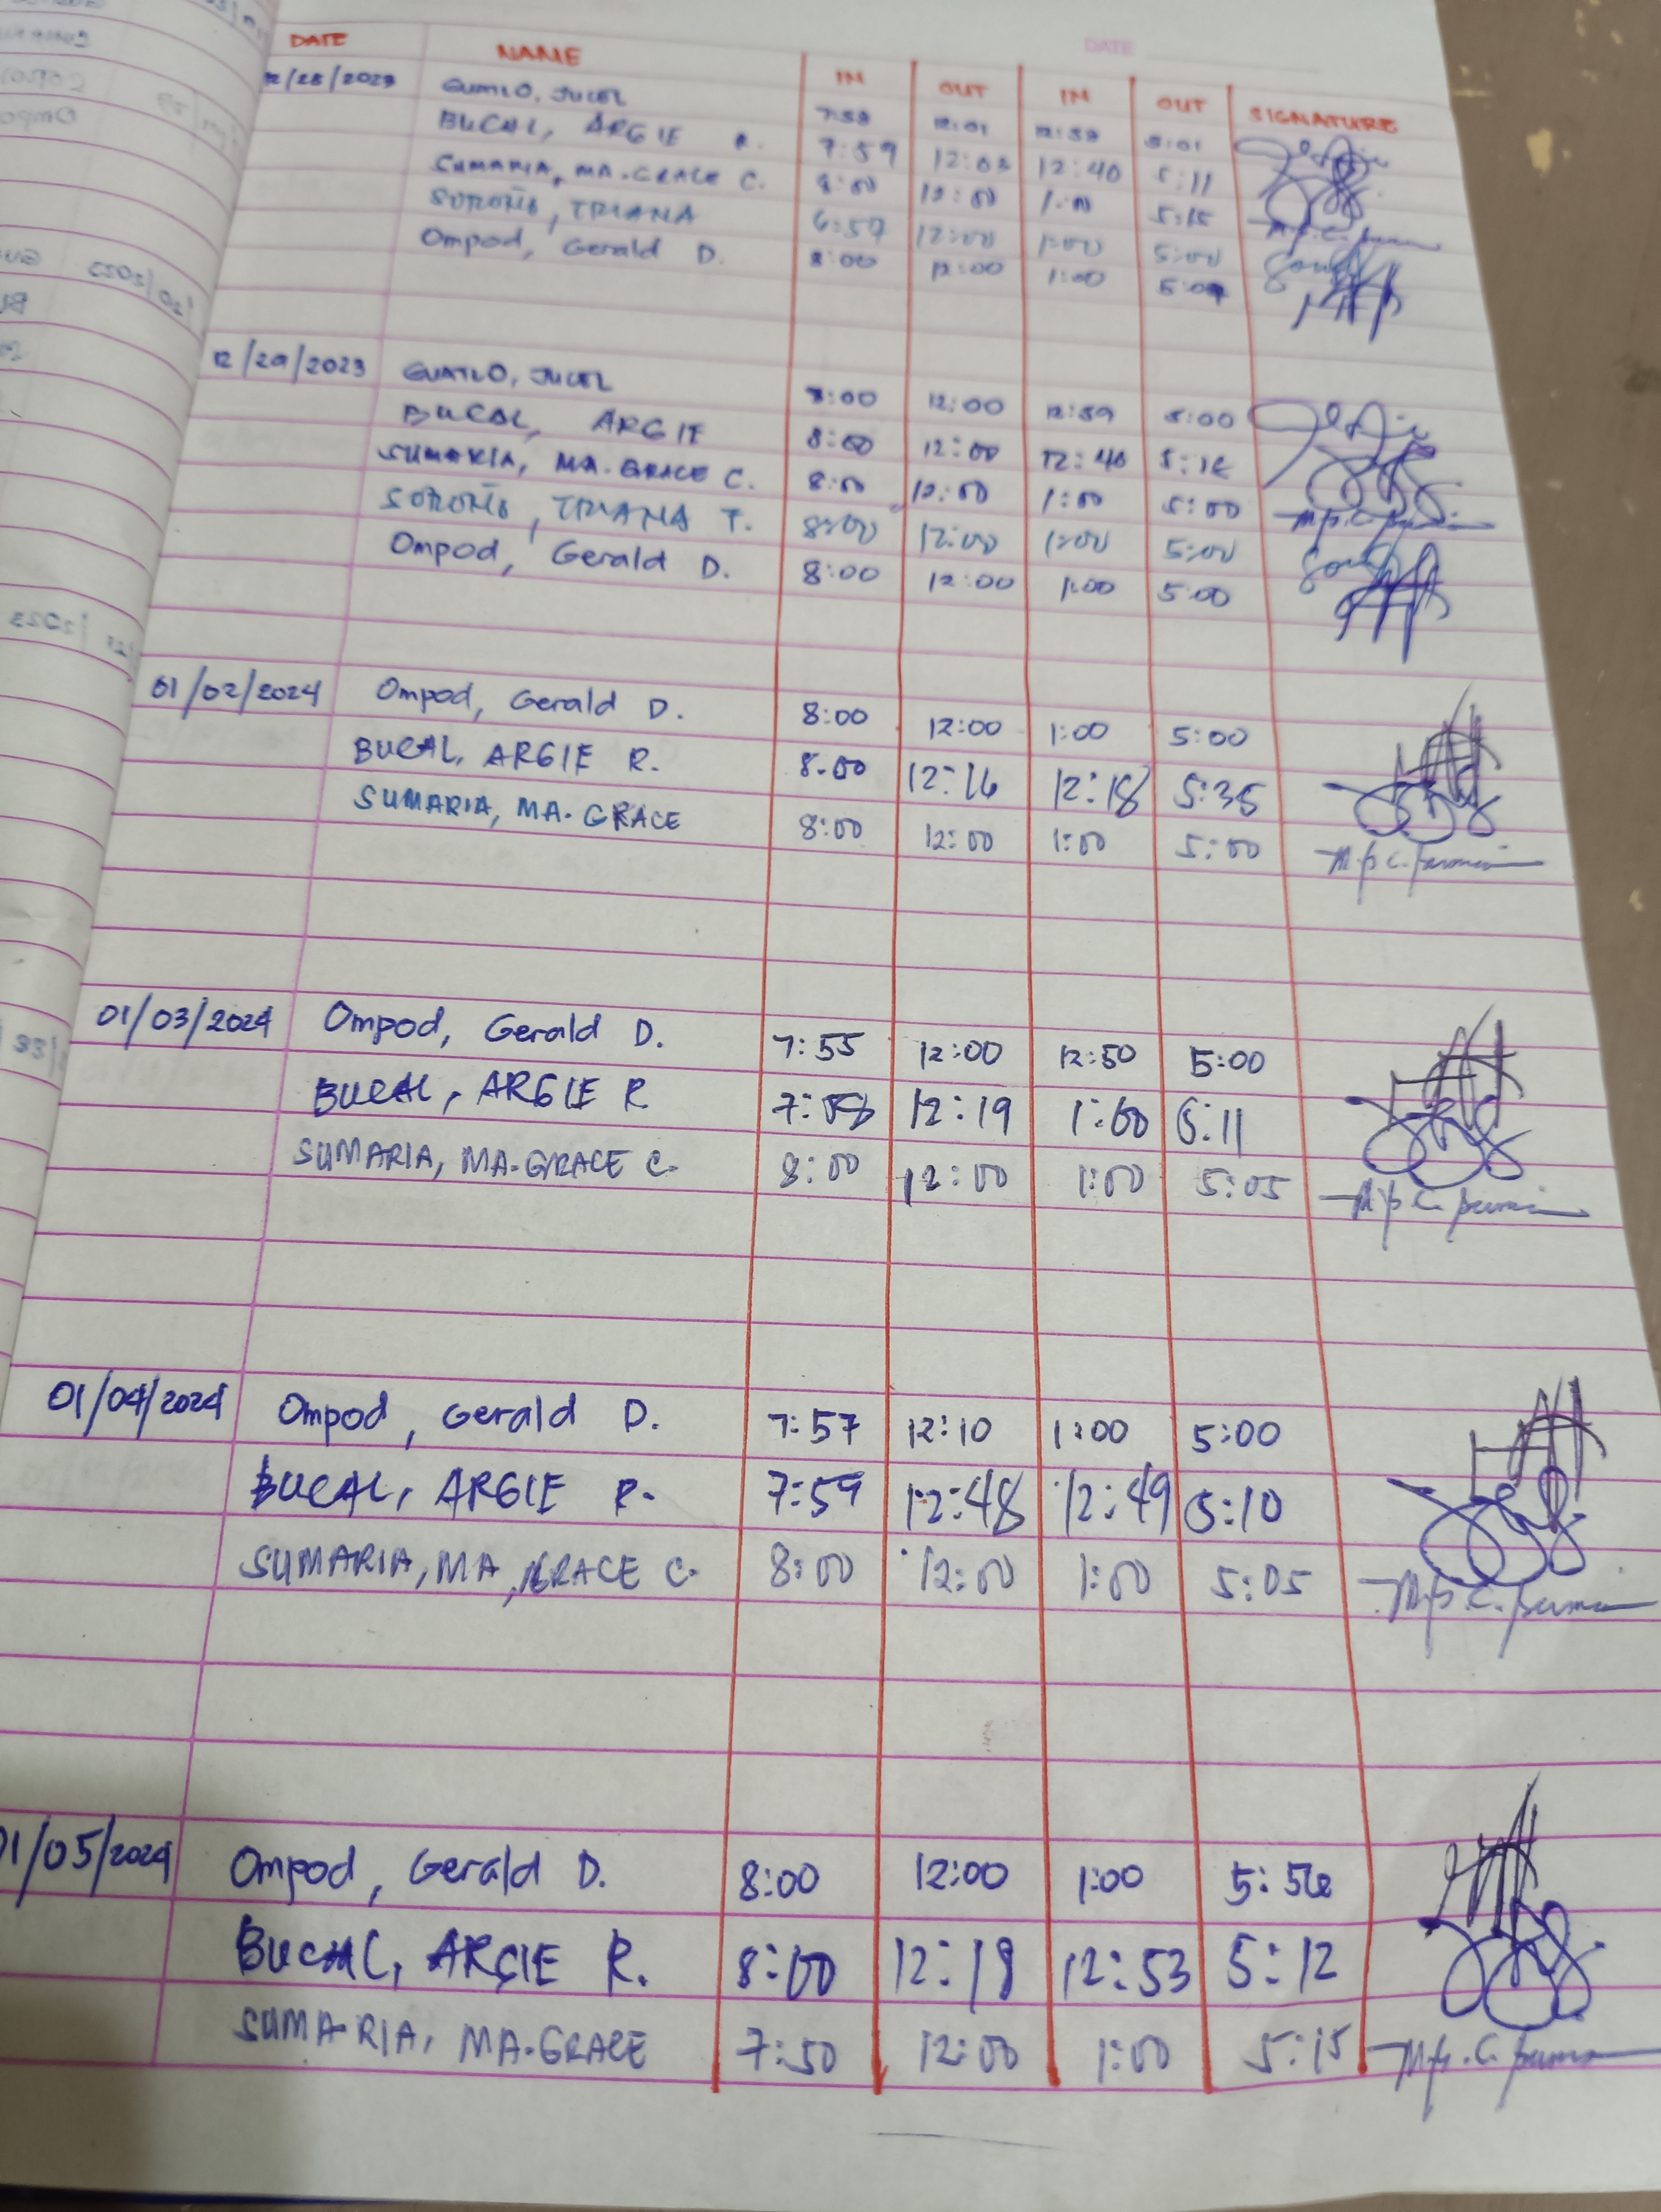 DATE
DATE NAME IN OUT IN OUT SIGNATURE
12/28/2023 GUATLO, JUCEL 7:58 12:01 12:59 5:01
BUCAL, ARGIE R. 7:59 12:03 12:40 5:11
SUMARIA, MA. GRACE C. 8:00 12:00 1:00 5:15
SOROÑO, TRIANA 6:59 12:00 1:00 5:00
Ompod, Gerald D. 8:00 12:00 1:00
12/29/2023 GUATLO, JUCEL 8:00 12:00 12:59 5:00
BUCAL, ARGIE 8:00 12:00 12:40
SUMARIA, MA. GRACE C. 8:00 12:00 1:00 5:00
SOROÑO, TRIANA T. 8:00 12:00 1:00 5:00
Ompod, Gerald D. 8:00 12:00 1:00 5:00
01/02/2024 Ompod, Gerald D. 8:00 12:00 1:00 5:00
BUCAL, ARGIE R. 8:00 12:16 12:18 5:35
SUMARIA, MA. GRACE 8:00 12:00 1:00 5:00
01/03/2024 Ompod, Gerald D. 7:55 12:00 12:50 5:00
BUCAL, ARGIE R 7:58 12:19 1:00 5:11
SUMARIA, MA. GRACE C. 8:00 12:00 1:00 5:05
01/04/2024 Ompod, Gerald D. 7:57 12:10 1:00 5:00
BUCAL, ARGIE R. 7:59 12:48 12:49 5:10
SUMARIA, MA. GRACE C. 8:00 12:00 1:00 5:05
01/05/2024 Ompod, Gerald D. 8:00 12:00 1:00 5:56
BUCAL, ARGIE R. 8:00 12:18 12:53 5:12
SUMARIA, MA. GRACE 7:50 12:00 1:00 5:15